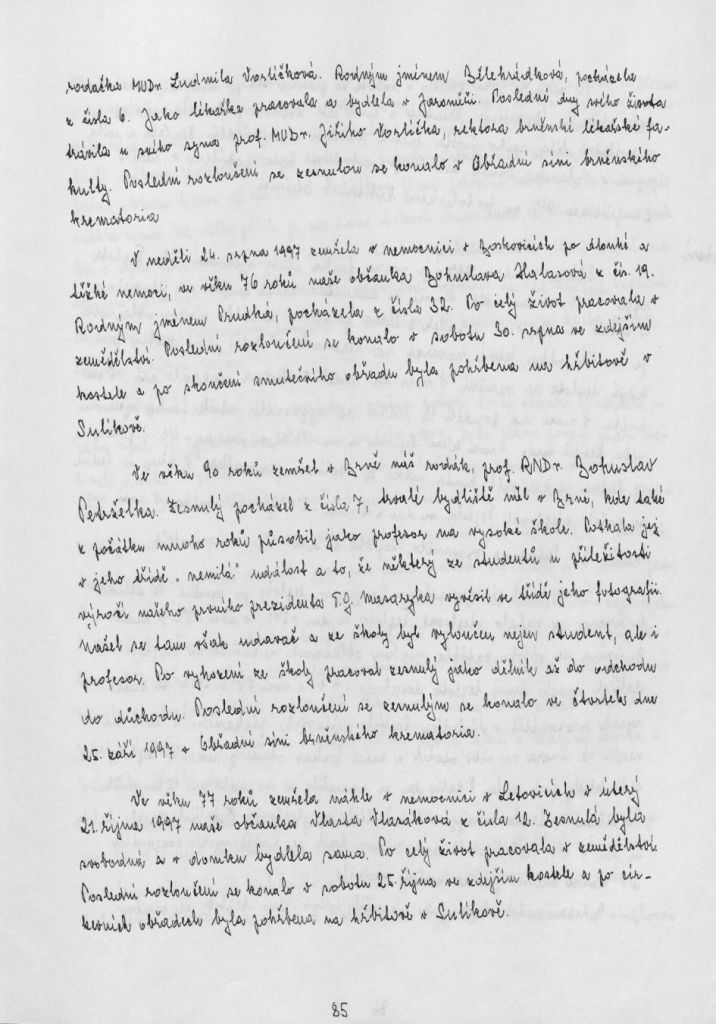 rodačka MUDr. Ludmila Vorlíčková. Rodným jménem Bělehrádková, pocházela
z čísla 6. Jako lékařka pracovala a bydlela v Jaroměři. Poslední dny svého života
trávila u svého syna prof. MUDr. Jiřího Vorlíčka, rektora brněnské lékařské fa-
kulty. Poslední rozloučení se zesnulou se konalo v Obřadní síni brněnského
krematoria
V neděli 24. srpna 1997 zemřela v nemocnici v Boskovicích po dlouhé a
těžké nemoci, ve věku 76 roků naše občanka Bohuslava Halasová z čís. 19.
Rodným jménem Prudká, pocházela z čísla 32. Po celý život pracovala v
zemědělství. Poslední rozloučení se konalo v sobotu 30. srpna ve zdejším
kostele a po skončení smutečního obřadu byla pohřbena na hřbitově v
Sulíkově.
Ve věku 90 roků zemřel v Brně náš rodák, prof. RNDr. Bohuslav
Petrželka. Zesnulý pocházel z čísla 7, trvalé bydliště měl v Brně, kde také
z počátku mnoho roků působil jako profesor na vysoké škole. Potkala jej
v jeho třídě „nemilá" událost a to, že některý ze studentů u příležitosti
výročí našeho prvního prezidenta T.G. Masaryka vyvěsil ve třídě jeho fotografii.
Našel se tam však udavač a ze školy byl vyloučen nejen student, ale i
profesor. Po vyhození ze školy pracoval zesnulý jako dělník až do odchodu
do důchodu. Poslední rozloučení se zesnulým se konalo ve čtvrtek dne
25. září 1997 v Obřadní síni brněnského krematoria.
Ve věku 77 roků zemřela náhle v nemocnici v Letovicích v úterý
21. října 1997 naše občanka Vlasta Vlasáková z čísla 12. Zesnulá byla
svobodná a v domku bydlela sama. Po celý život pracovala v zemědělství.
Poslední rozloučení se konalo v sobotu 25. října ve zdejším kostele a po cír-
kevních obřadech byla pohřbena na hřbitově v Sulíkově.
85